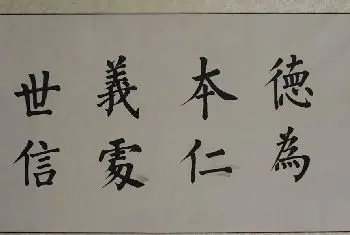 德為
本仁
義處
世信